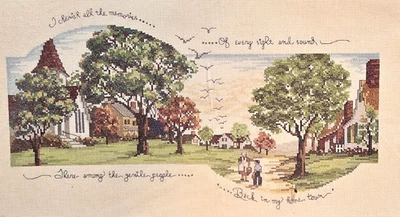 I cherish all the memories.....
.....Of every sight and sound
.....There among the gentle people.....
.....Back in my home town